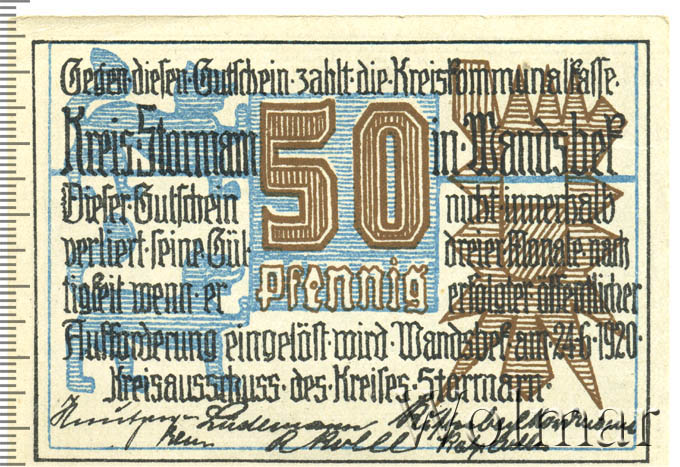 Gegen·diesen·Gutschein·zahlt·die·Kreiskommunalkasse·
Kreis Stormarn 50 in·Wandsbek
Dieser·Gutschein nicht·innerhalb
verliert·seine Gül- dreier·Monate·nach
tigkeit·wenn·er Pfennig erfolgter·öffentlicher
Aufforderung·eingelöst·wird·Wandsbek·am·24·6·1920·
Kreisausschuss·des·Kreises·Stormarn·
Lüdemann